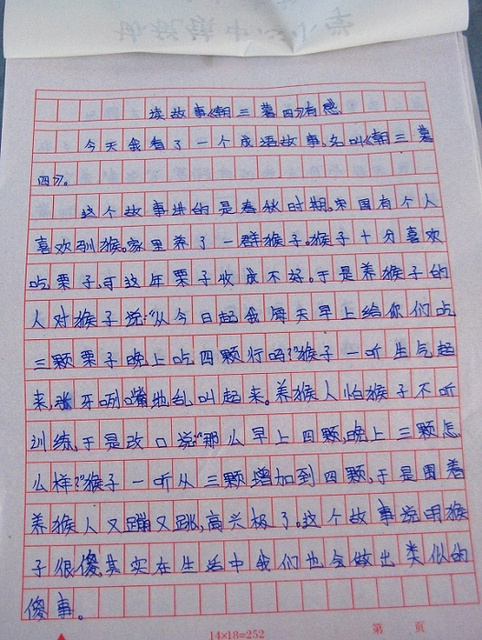 读故事《朝三暮四》有感
今天我看了一个成语故事,名叫《朝三暮
四》。
这个故事讲的是春秋时期,宋国有个人
喜欢驯猴。家里养了一群猴子。猴子十分喜欢
吃栗子,可这年栗子收成不好。于是养猴子的
人对猴子说:“从今日起我每天早上给你们吃
三颗栗子晚上吃四颗行吗?”猴子一听生气起
来,张牙咧嘴地乱叫起来。养猴人怕猴子不听
训练,于是改口说:“那么早上四颗,晚上三颗怎
么样?”猴子一听从三颗增加到四颗,于是围着
养猴人又蹦又跳,高兴极了。这个故事说明猴
子很傻,其实在生活中我们也会做出类似的
傻事。
14×18=252
第 页